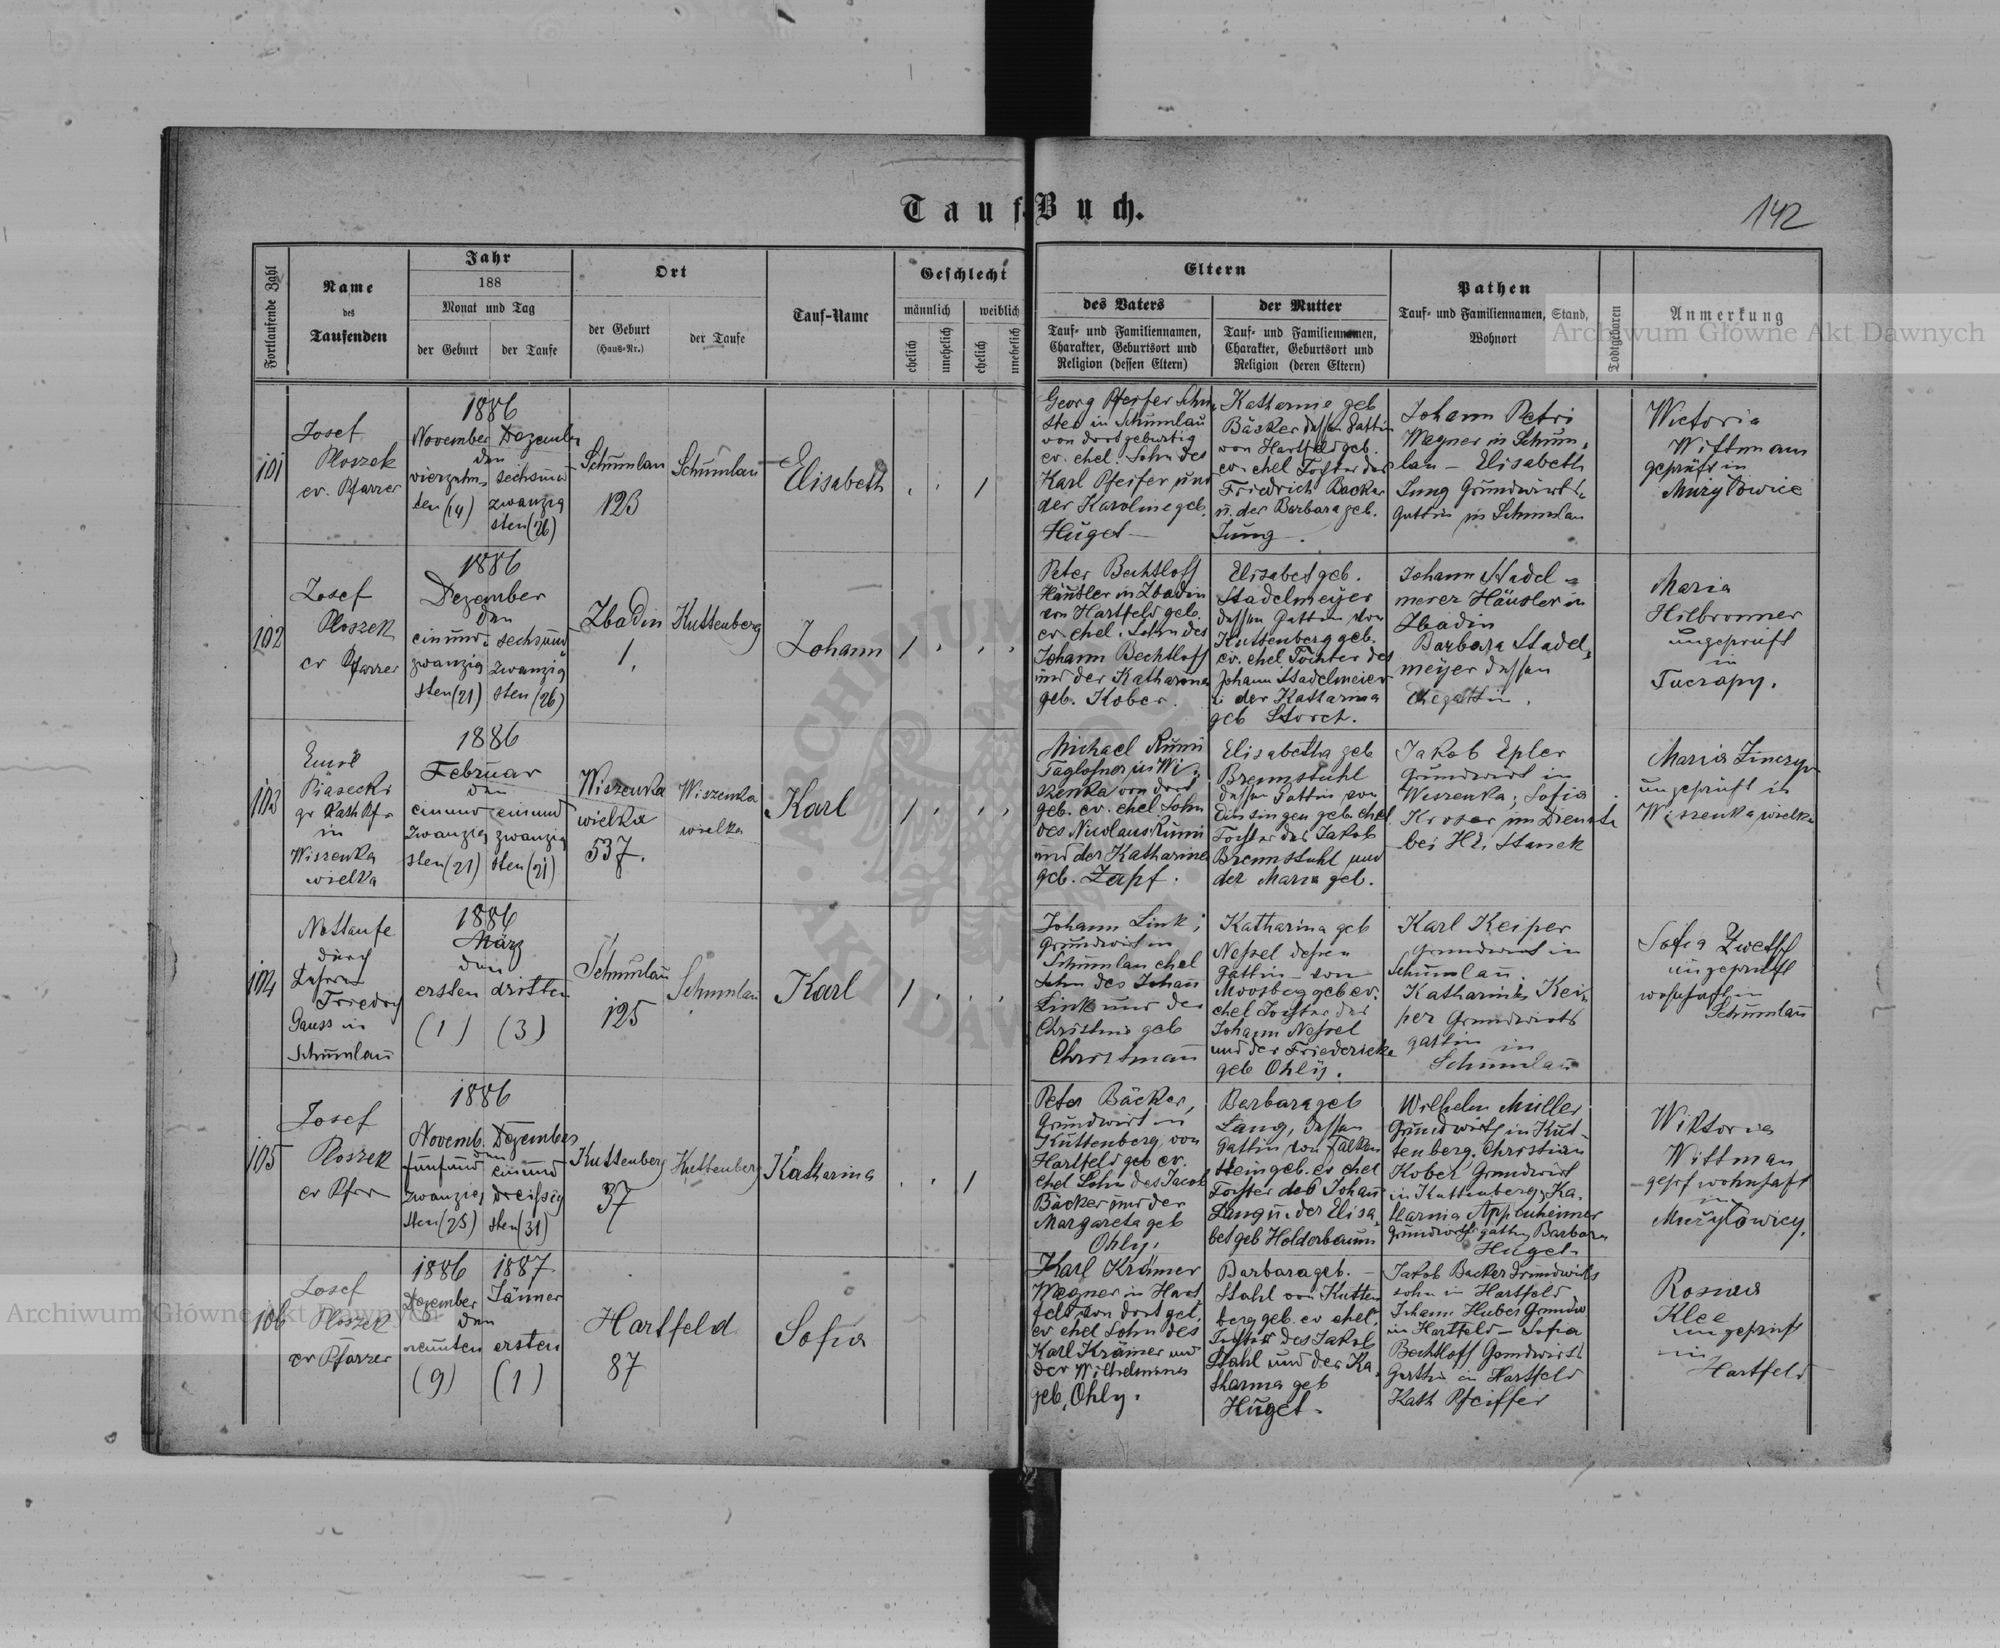 Tauf-Buch.
142
Fortlaufende Zahl
Name
des
Taufenden
Jahr
188
Monat und Tag
der Geburt
der Taufe
Ort
der Geburt
(Haus-Nr.)
der Taufe
Tauf-Name
Geschlecht
männlich
weiblich
ehelich
unehelich
ehelich
unehelich
Eltern
des Vaters
Tauf- und Familiennamen,
Charakter, Geburtsort und
Religion (dessen Eltern)
der Mutter
Tauf- und Familiennamen,
Charakter, Geburtsort und
Religion (deren Eltern)
Pathen
Tauf- und Familiennamen, Stand,
Wohnort
Todtgeboren
Anmerkung
Archiwum Główne Akt Dawnych
101
Josef
Ploszek
ev. Pfarrer
1886
November Dezember
den
vierzehn- sechsund
ten (14) zwanzig
sten (26)
Schumlau
123
Schumlau
Elisabeth
Georg Pfeifer Schu
ster in Schumlau
von dort gebürtig
ev. ehel. Sohn des
Karl Pfeifer und
der Karoline geb.
Huget
Katharine geb
Bäcker dessen Gattin
von Hartfeld geb.
ev. ehel Tochter des
Friedrich Backer
u. der Barbara geb.
Jung.
Johann Petri
Wagner in Schum-
lau - Elisabeth
Jung Grundwirts-
gattin in Schumlau
Wictoria
Wittmann
geprüft in
Mużyłowice
102
Josef
Ploszek
ev Pfarrer
1886
Dezember
den
einund- sechsund
zwanzig zwanzig
sten (21) sten (26)
Zbadin
1.
Kuttenberg
Johann
Peter Bechtloff
Häusler in Zbadin
von Hartfeld geb.
ev ehel. Sohn des
Johann Bechtloff
und der Katharina
geb. Kober.
Elisabet geb.
Stadelmeyer
dessen Gattin von
Kuttenberg geb.
ev. ehel. Tochter des
Johann Stadelmeier
u. der Katharina
geb Storch.
Johann Stadel-
merer Häusler in
Zbadin
Barbara Stadel-
meyer dessen
Ehegattin.
Maria
Hilbronner
ungeprüft
in
Tuczapy.
103
Emil
Piasecki
gr Kath Pf.
in
Wiszenka
wielka
1886
Februar
den
einund einund
zwanzig zwanzig
sten (21) sten (21)
Wiszenka
wielka
537.
Wiszenka
wielka
Karl
Michael Rumi
Taglohner in Wi-
szenka von dort
geb. ev. ehel. Sohn
des Nicolaus Rumi
und der Katharine
geb. Zapf.
Elisabetha geb
Brennstuhl
dessen Gattin von
Einsingen geb. ehel
Tochter des Jakob
Brennstuhl und
der Maria geb.
Jakob Epler
Grundwirt in
Wiszenka; Sofia
Kroser im Dienste
bei HE. Stanek
Maria
ungeprüft in
Wiszenka wielka
104
Nottaufe
durch
Lehrer
Friedrich
Gauss in
Schumlau
1886
März
den
ersten dritten
(1) (3)
Schumlau
125
Schumlau
Karl
Johann Link;
Grundwirt in
Schumlau ehel
Sohn des Johann
Link und der
Christine geb
Christmann
Katharina geb
Nessel dessen
Gattin von
Moosberg geb ev.
ehel Tochter des
Johann Nessel
und der Friedericke
geb Ohly.
Karl Keiper
Grundwirt in
Schumlau.
Katharina Kei-
per Grundwirts
gattin in
Schumlau
Sofia
ungeprüft
wohnhaft in
Schumlau
105
Josef
Ploszek
ev Pfrr
1886
Novemb. Dezember
den
funfund einund
zwanzig dreißig
sten (25) sten (31)
Kuttenberg
37
Kuttenberg
Katharina
Peter Bäcker,
Grundwirt in
Kuttenberg, von
Hartfeld geb ev.
ehel Sohn des Jacob
Bäcker und der
Margareta geb
Ohly.
Barbara geb
Lang, dessen
Gattin von Falken
stein geb. ev ehel
Tochter des Johann
Lang u. der Elisa-
bet geb Holderbaum
Wilhelm Müller
Grundwirt in Kut-
tenberg, Christian
Kober Grundwirt
in Kuttenberg, Ka-
tharina Appenheimer
Grundwirts gattin, Barbara
Huget
Wiktoria
Wittman
gepr wohnhaft
in
Mużyłowicy.
106
Josef
Ploszek
ev Pfarrer
1886 1887
Dezember Jänner
den
neunten ersten
(9) (1)
Hartfeld
87
Sofia
Karl Krämer
Wagner in Hart
feld von dort geb.
ev ehel Sohn des
Karl Krämer und
der Wilhelmina
geb. Ohly.
Barbara geb.
Stahl von Kutten
berg geb. ev ehel.
Tochter des Jakob
Stahl und der Ka-
tharina geb
Huget.
Jakob Backer Grundwirts
sohn in Hartfeld
Johann Huber Grundw
in Hartfeld - Sofia
Bechtloff Grundwirts
Gattin in Hartfeld
Kath Pfeiffer
Rosina
Klee
ungeprüft
in
Hartfeld
Archiwum Główne Akt Dawnych
ARCHIWUM
AKT DAWN